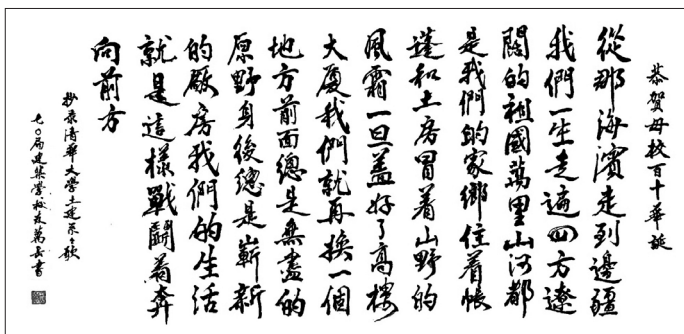 恭賀母校百十華誕
從那海濱走到邊疆
我們一生走遍四方遼
闊的祖國萬里山河都
是我們的家鄉住着帳
蓬和土房冒着山野的
風霜一旦蓋好了高樓
大厦我們就再換一個
地方前面總是無盡的
原野身後總是嶄新
的廠房我們的生活
就是這樣戰鬥着奔
向前方
抄录清華大學土建系系歌
七〇届建築學校友萬岳書